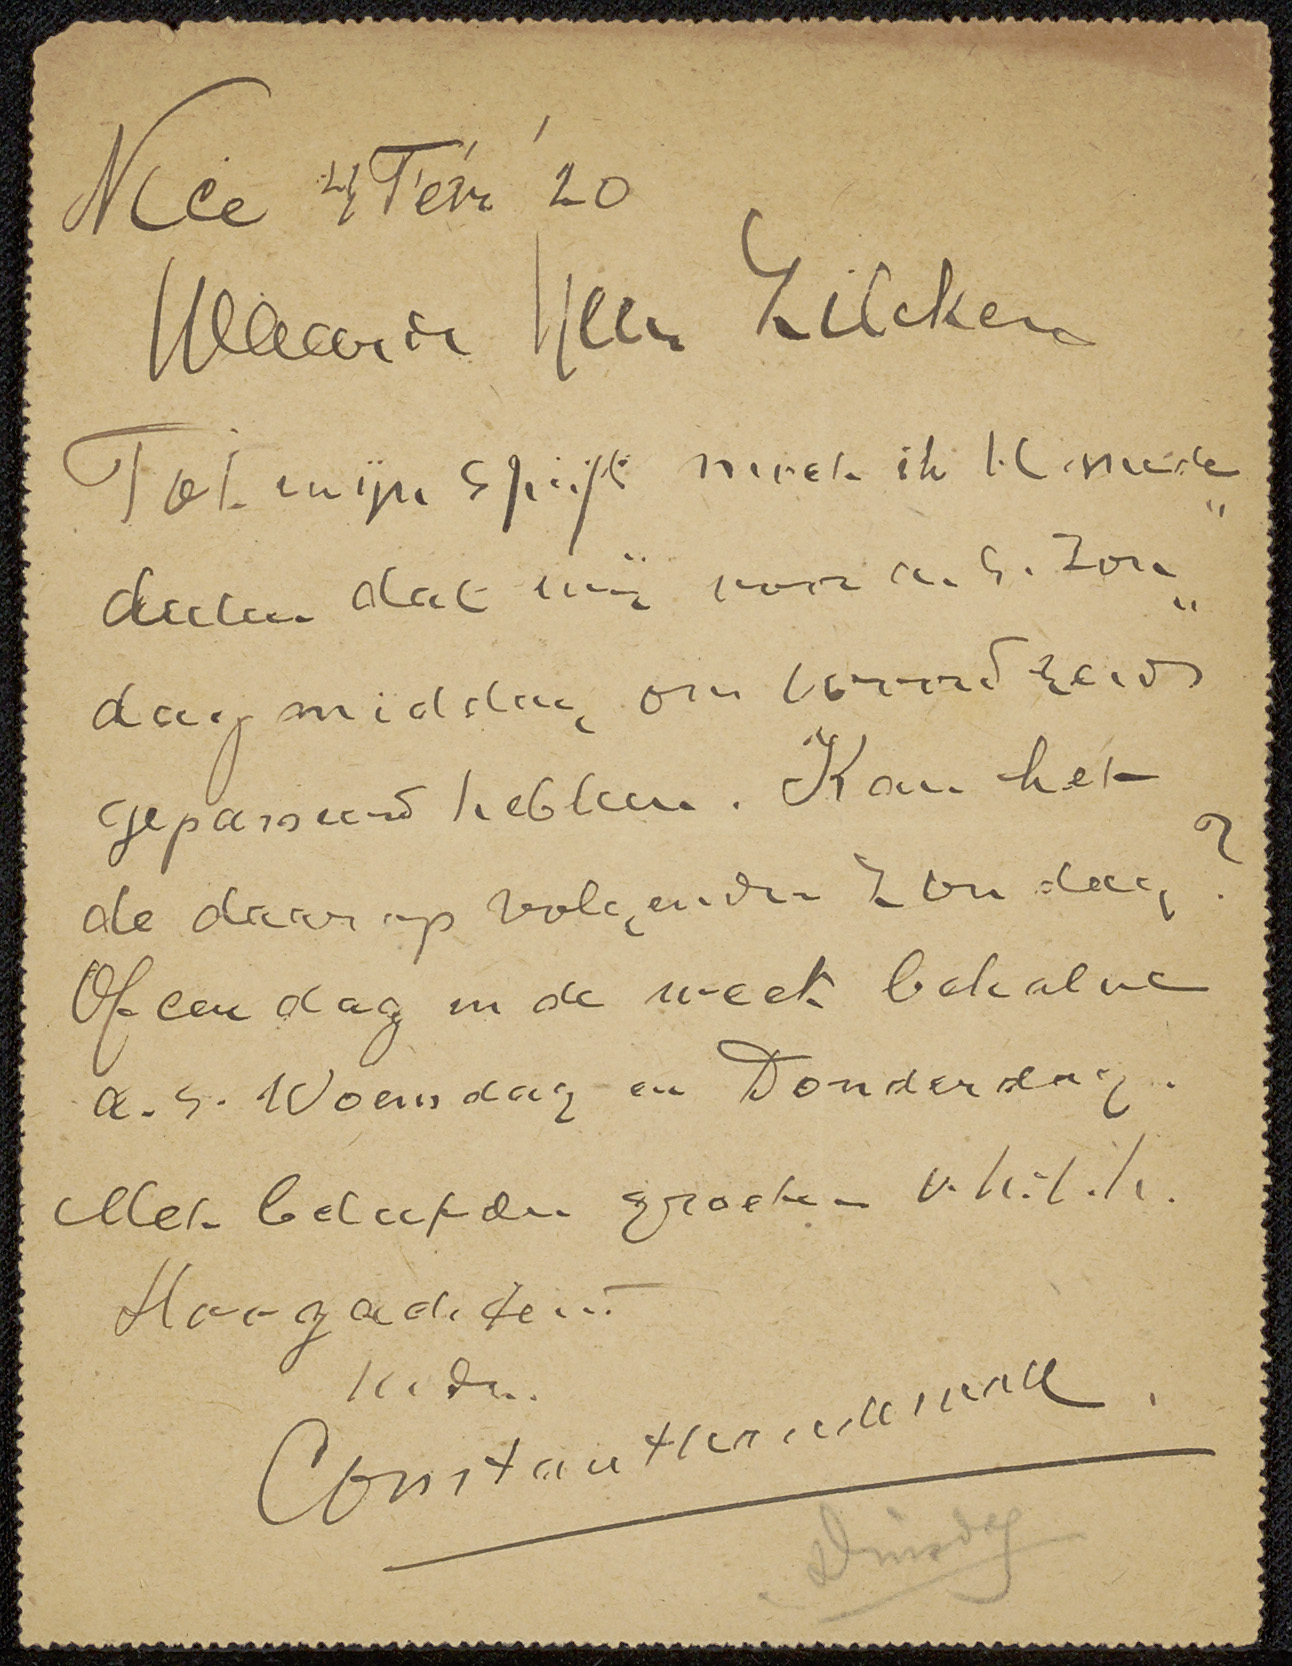 Nice 4 Febr '20
Waarde Heer Zilcken
Tot mijn spijt moet ik U mede„
deelen dat wij voor a.s. Zon„
dagmiddag ons woord reeds
gepasseerd hebben. Kan het
de daarop volgenden Zondag?
Of een dag in de week behalve
a.s. Woensdag en Donderdag.
Met beleefden groeten v.h.t.h.
Hoogachtend
Uw dr.
Dinsdag